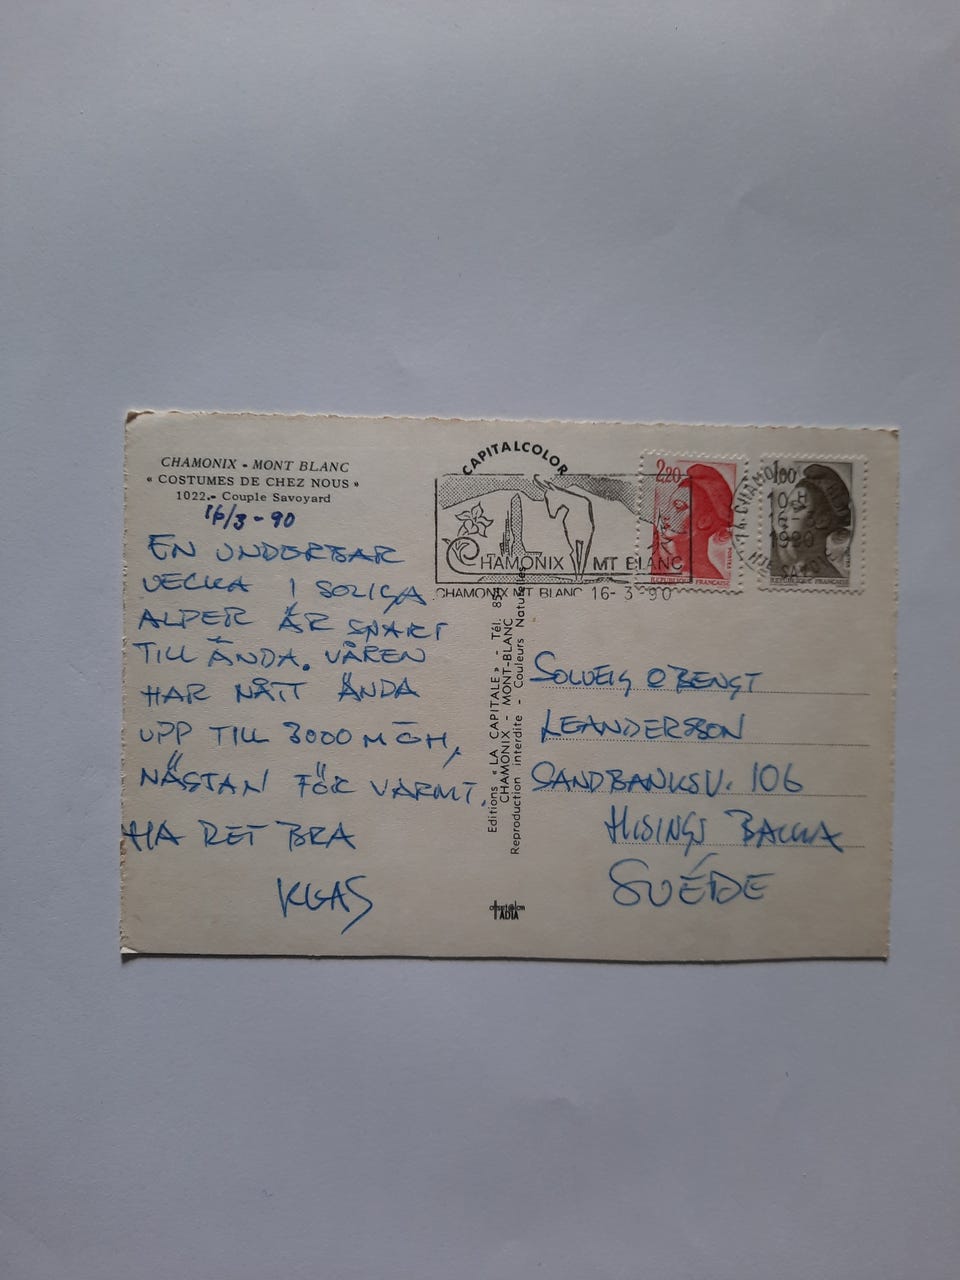 CHAMONIX - MONT BLANC
« COSTUMES DE CHEZ NOUS »
1022.- Couple Savoyard
16/3-90
EN UNDERBAR
VECKA I SOLIGA
ALPER ÄR SNART
TILL ÄNDA. VÅREN
HAR NÅTT ÄNDA
UPP TILL 3000 M ÖH,
NÄSTAN FÖR VARMT.
HA DET BRA
KLAS
CAPITALCOLOR
CHAMONIX MT BLANC
CHAMONIX MT BLANC 16-3-90
2,20
POSTES
REPUBLIQUE FRANÇAISE
1,00
REPUBLIQUE FRANÇAISE
74 CHAMONIX
10 H
16-3
1990
Editions « LA CAPITALE » - Tél.
CHAMONIX - MONT-BLANC
Reproduction interdite - Couleurs Naturelles
SOLVEIG O BENGT
LEANDERSSON
SANDBANKSV. 106
HISINGS BACKA
SUÉDE
TADIA